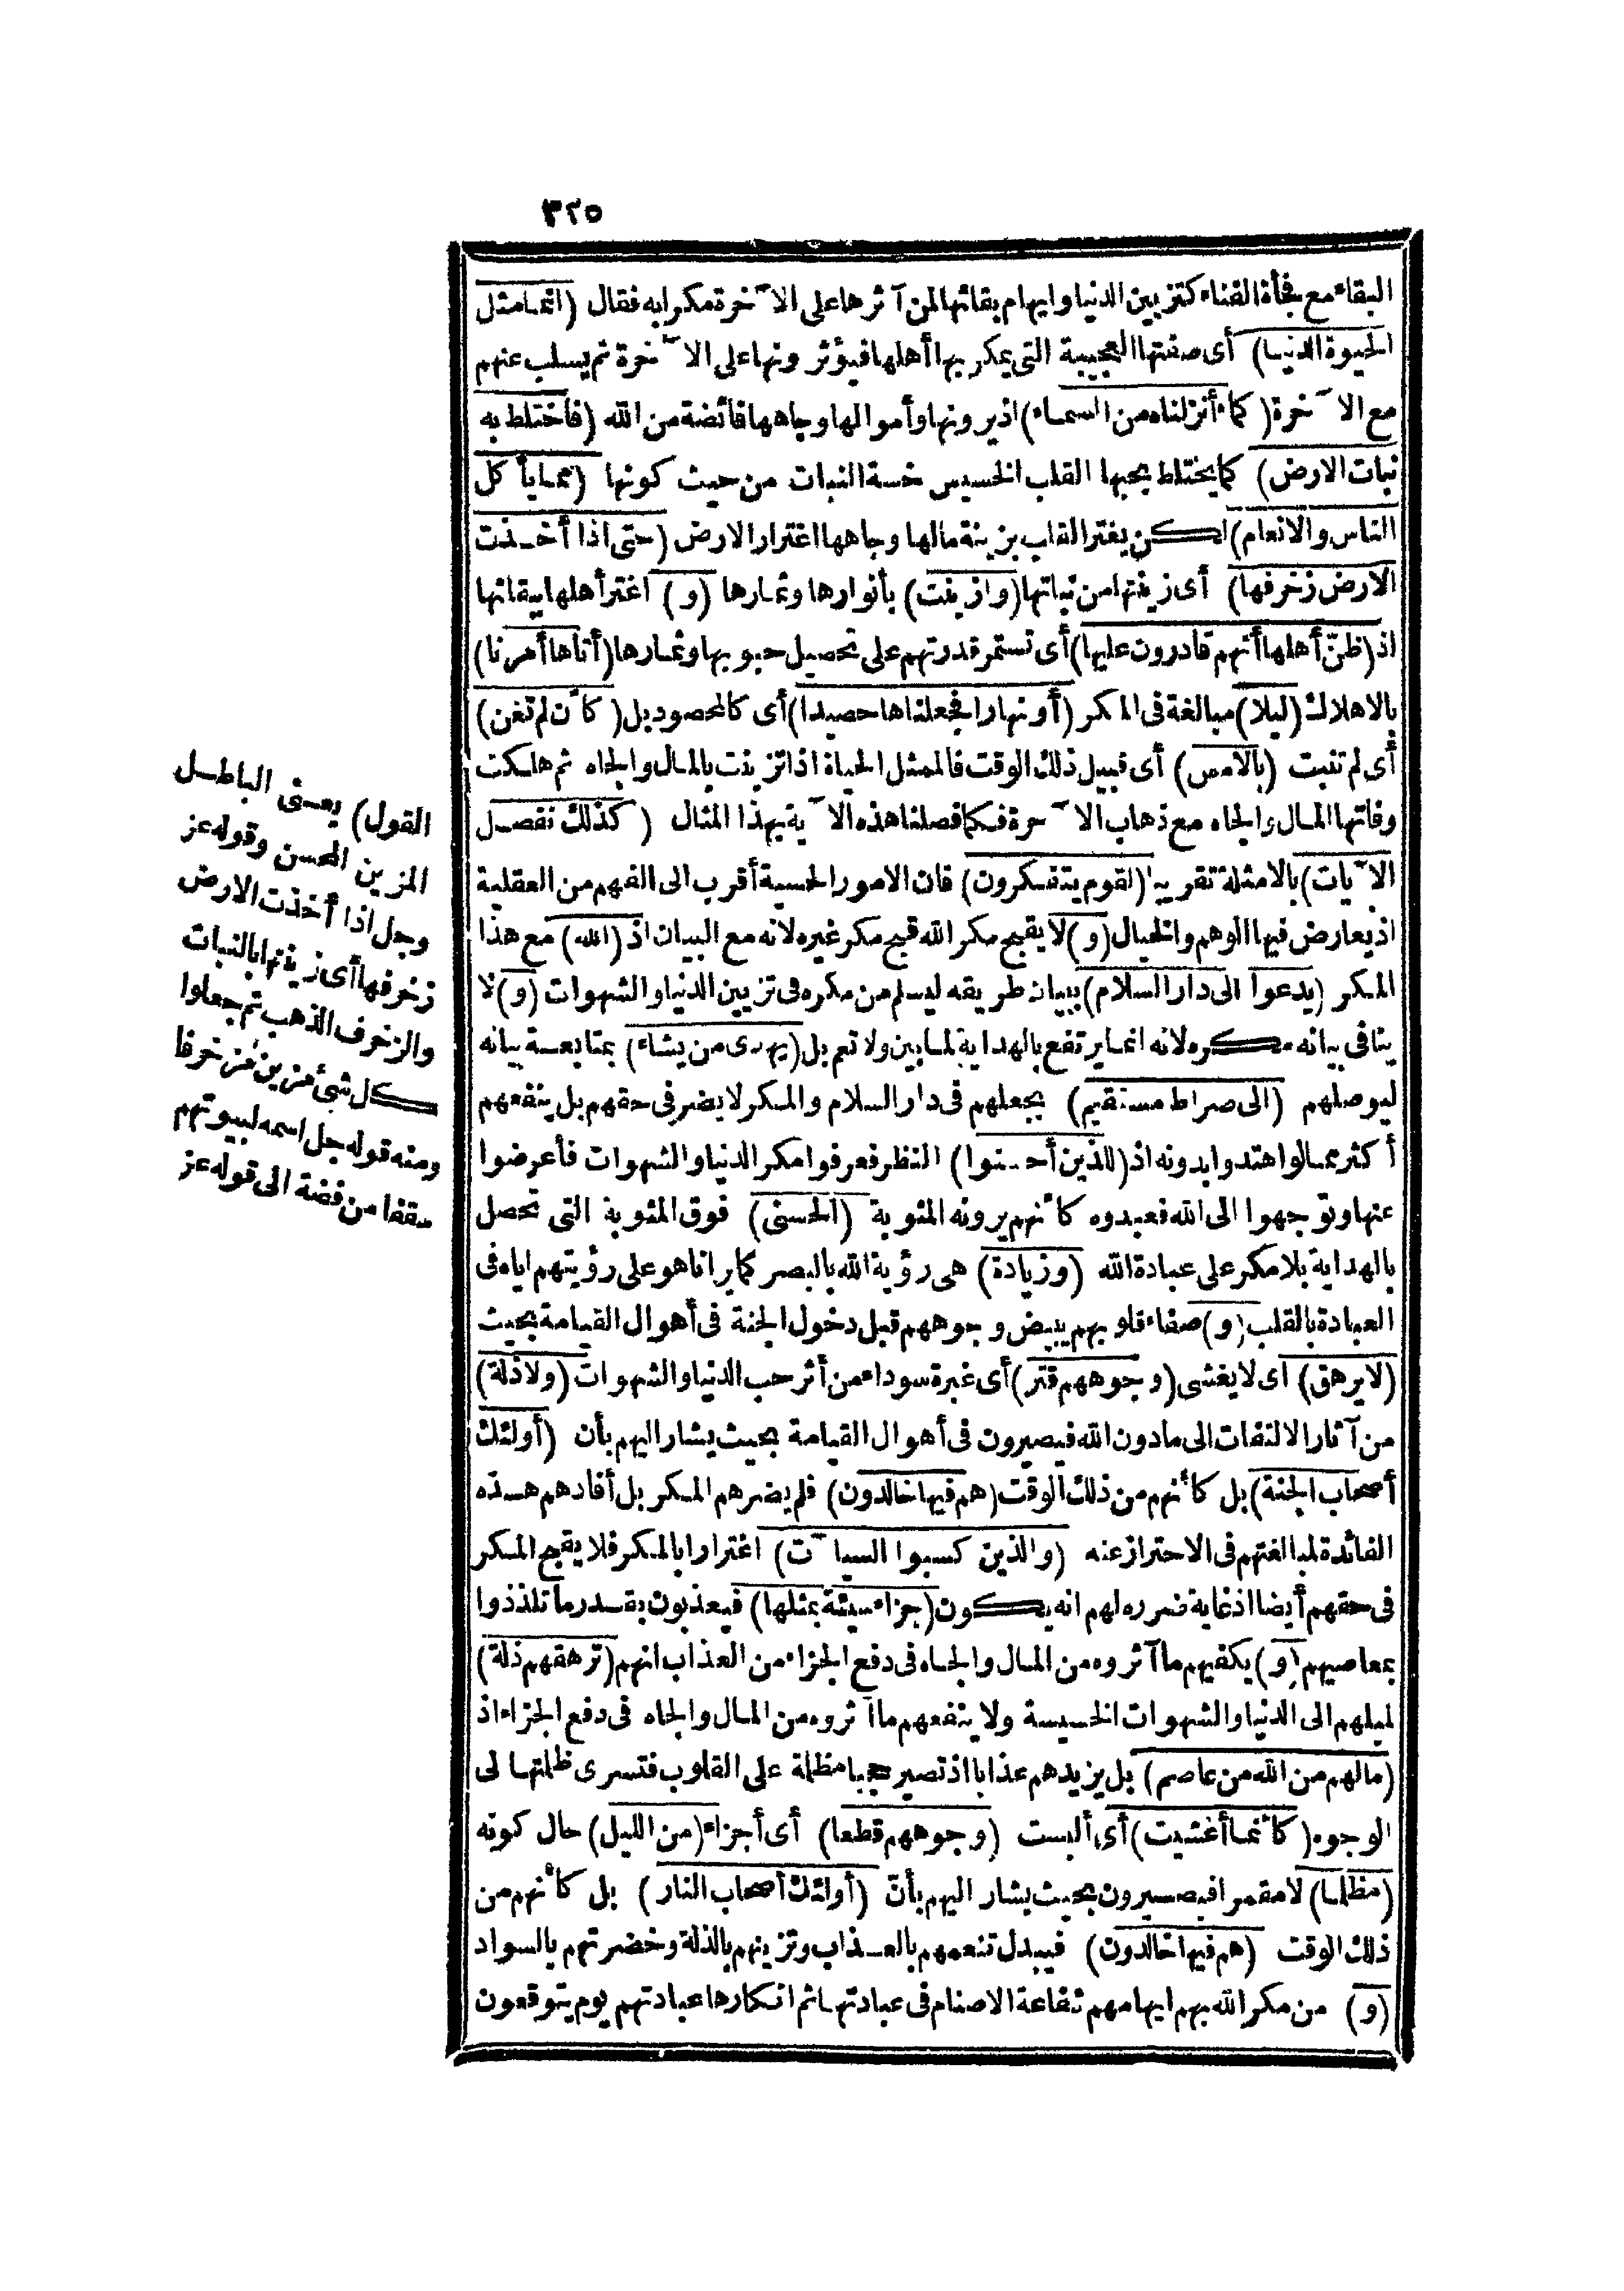 ٣٢٥
البقاء مع فجأة الفناء كتزيين الدنيا وايهام بقائها لمن آثرها على الآخرة مكرا به فقال (انما مثل
الحيوة الدنيا) أى صفتها العجيبة التى يمكر بها أهلها فيؤثرونها على الآخرة ثم يسلب عنهم
مع الآخرة (كماء أنزلناه من السماء) اذ يرونها وأموالها وجاهها فائضة من الله (فاختلط به
نبات الارض) كما يختلط بحبها القلب الخسيس خسة النبات من حيث كونها (مما يأكل
الناس والانعام) لكن يغتر القلب بزينة مالها وجاهها اغترار الارض (حتى اذا أخذت
الارض زخرفها) أى زينتها من نباتها (وازينت) بأنوارها وثمارها (و) اغتر أهلها ببقائها
اذ (ظنّ أهلها أنهم قادرون عليها) أى تستمر قدرتهم على تحصيل حبوبها وثمارها (أتاها أمرنا)
بالاهلاك (ليلا) مبالغة فى المكر (أو نهارا فجعلناها حصيدا) أى كالمحصود بل (كأن لم تغن)
أى لم تنبت (بالامس) أى قبيل ذلك الوقت فالممثل الحياة اذا تزينت بالمال والجاه ثم هلكت
وفاتها المال والجاه مع ذهاب الآخرة فكما فصلنا هذه الآية بهذا المثال (كذلك نفصل
الآيات) بالامثلة تقريبا (لقوم يتفكرون) فان الامور الحسية أقرب الى الفهم من العقلية
اذ يعارض فيها الوهم والخيال (و) لا يقبح مكر الله قبح مكر غيره لانه مع البيان اذ (الله) مع هذا
المكر (يدعوا الى دار السلام) ببيان طريقه ليسلم من مكره فى تزيين الدنيا والشهوات (و) لا
ينافى بيانه مكره لانه انما يرتفع بالهداية لما بين ولا تعم بل (يهدى من يشاء) بمتابعة بيانه
ليوصلهم (الى صراط مستقيم) بجعلهم فى دار السلام والمكر لا يضر فى حقهم بل ينفعهم
أكثر مما لو اهتدوا بدونه اذ (للذين أحسنوا) النظر فعرفوا مكر الدنيا والشهوات فأعرضوا
عنها وتوجهوا الى الله فعبدوه كأنهم يرونه المثوبة (الحسنى) فوق المثوبة التى تحصل
بالهداية بلا مكر على عبادة الله (وزيادة) هى رؤية الله بالبصر كما يرانا هو على رؤيتهم اياه فى
العبادة بالقلب (و) صفاء قلوبهم يبيض وجوههم قبل دخول الجنة فى أهوال القيامة بحيث
(لا يرهق) أى لا يغشى (وجوههم قتر) أى غبرة سوداء من أثر حب الدنيا والشهوات (ولا ذلة)
من آثار الالتفات الى ما دون الله فيصيرون فى أهوال القيامة بحيث يشار اليهم بأن (أولئك
أصحاب الجنة) بل كأنهم من ذلك الوقت (هم فيها خالدون) فلم يضرهم المكر بل أفادهم هذه
الفائدة لمبالغتهم فى الاحتراز عنه (والذين كسبوا السيآت) اغترارا بالمكر فلا يقبح المكر
فى حقهم أيضا اذ غاية ضرره لهم انه يكون (جزاء سيئة بمثلها) فيعذبون بقدر ما تلذذوا
بمعاصيهم (و) يكفيهم ما آثروه من المال والجاه فى دفع الجزاء من العذاب انهم (ترهقهم ذلة)
لميلهم الى الدنيا والشهوات الخسيسة ولا ينفعهم ما آثروه من المال والجاه فى دفع الجزاء اذ
(ما لهم من الله من عاصم) بل يزيدهم عذابا اذ تصير حجبا مظلمة على القلوب فتسرى ظلمتها لى
الوجوه (كأنما أغشيت) أى ألبست (وجوههم قطعا) أى أجزاء (من الليل) حال كونه
(مظلما) لا مقمرا فيصيرون بحيث يشار اليهم بأنّ (أولئك أصحاب النار) بل كأنهم من
ذلك الوقت (هم فيها خالدون) فيبدل تنعمهم بالعذاب وتزينهم بالذلة وخضرتهم بالسواد
(و) من مكر الله بهم ايهامهم شفاعة الاصنام فى عبادتها ثم انكارها عبادتهم يوم يتوقعون
القول) يعنى الباطل
المزين المحسن وقوله عز
وجل اذا أخذت الارض
زخرفها أى زينتها بالنبات
والزخرف الذهب ثم جعلوا
كل شئ مزين مزخرفا
ومنه قوله جل اسمه لبيوتهم
سقفا من فضة الى قوله عز